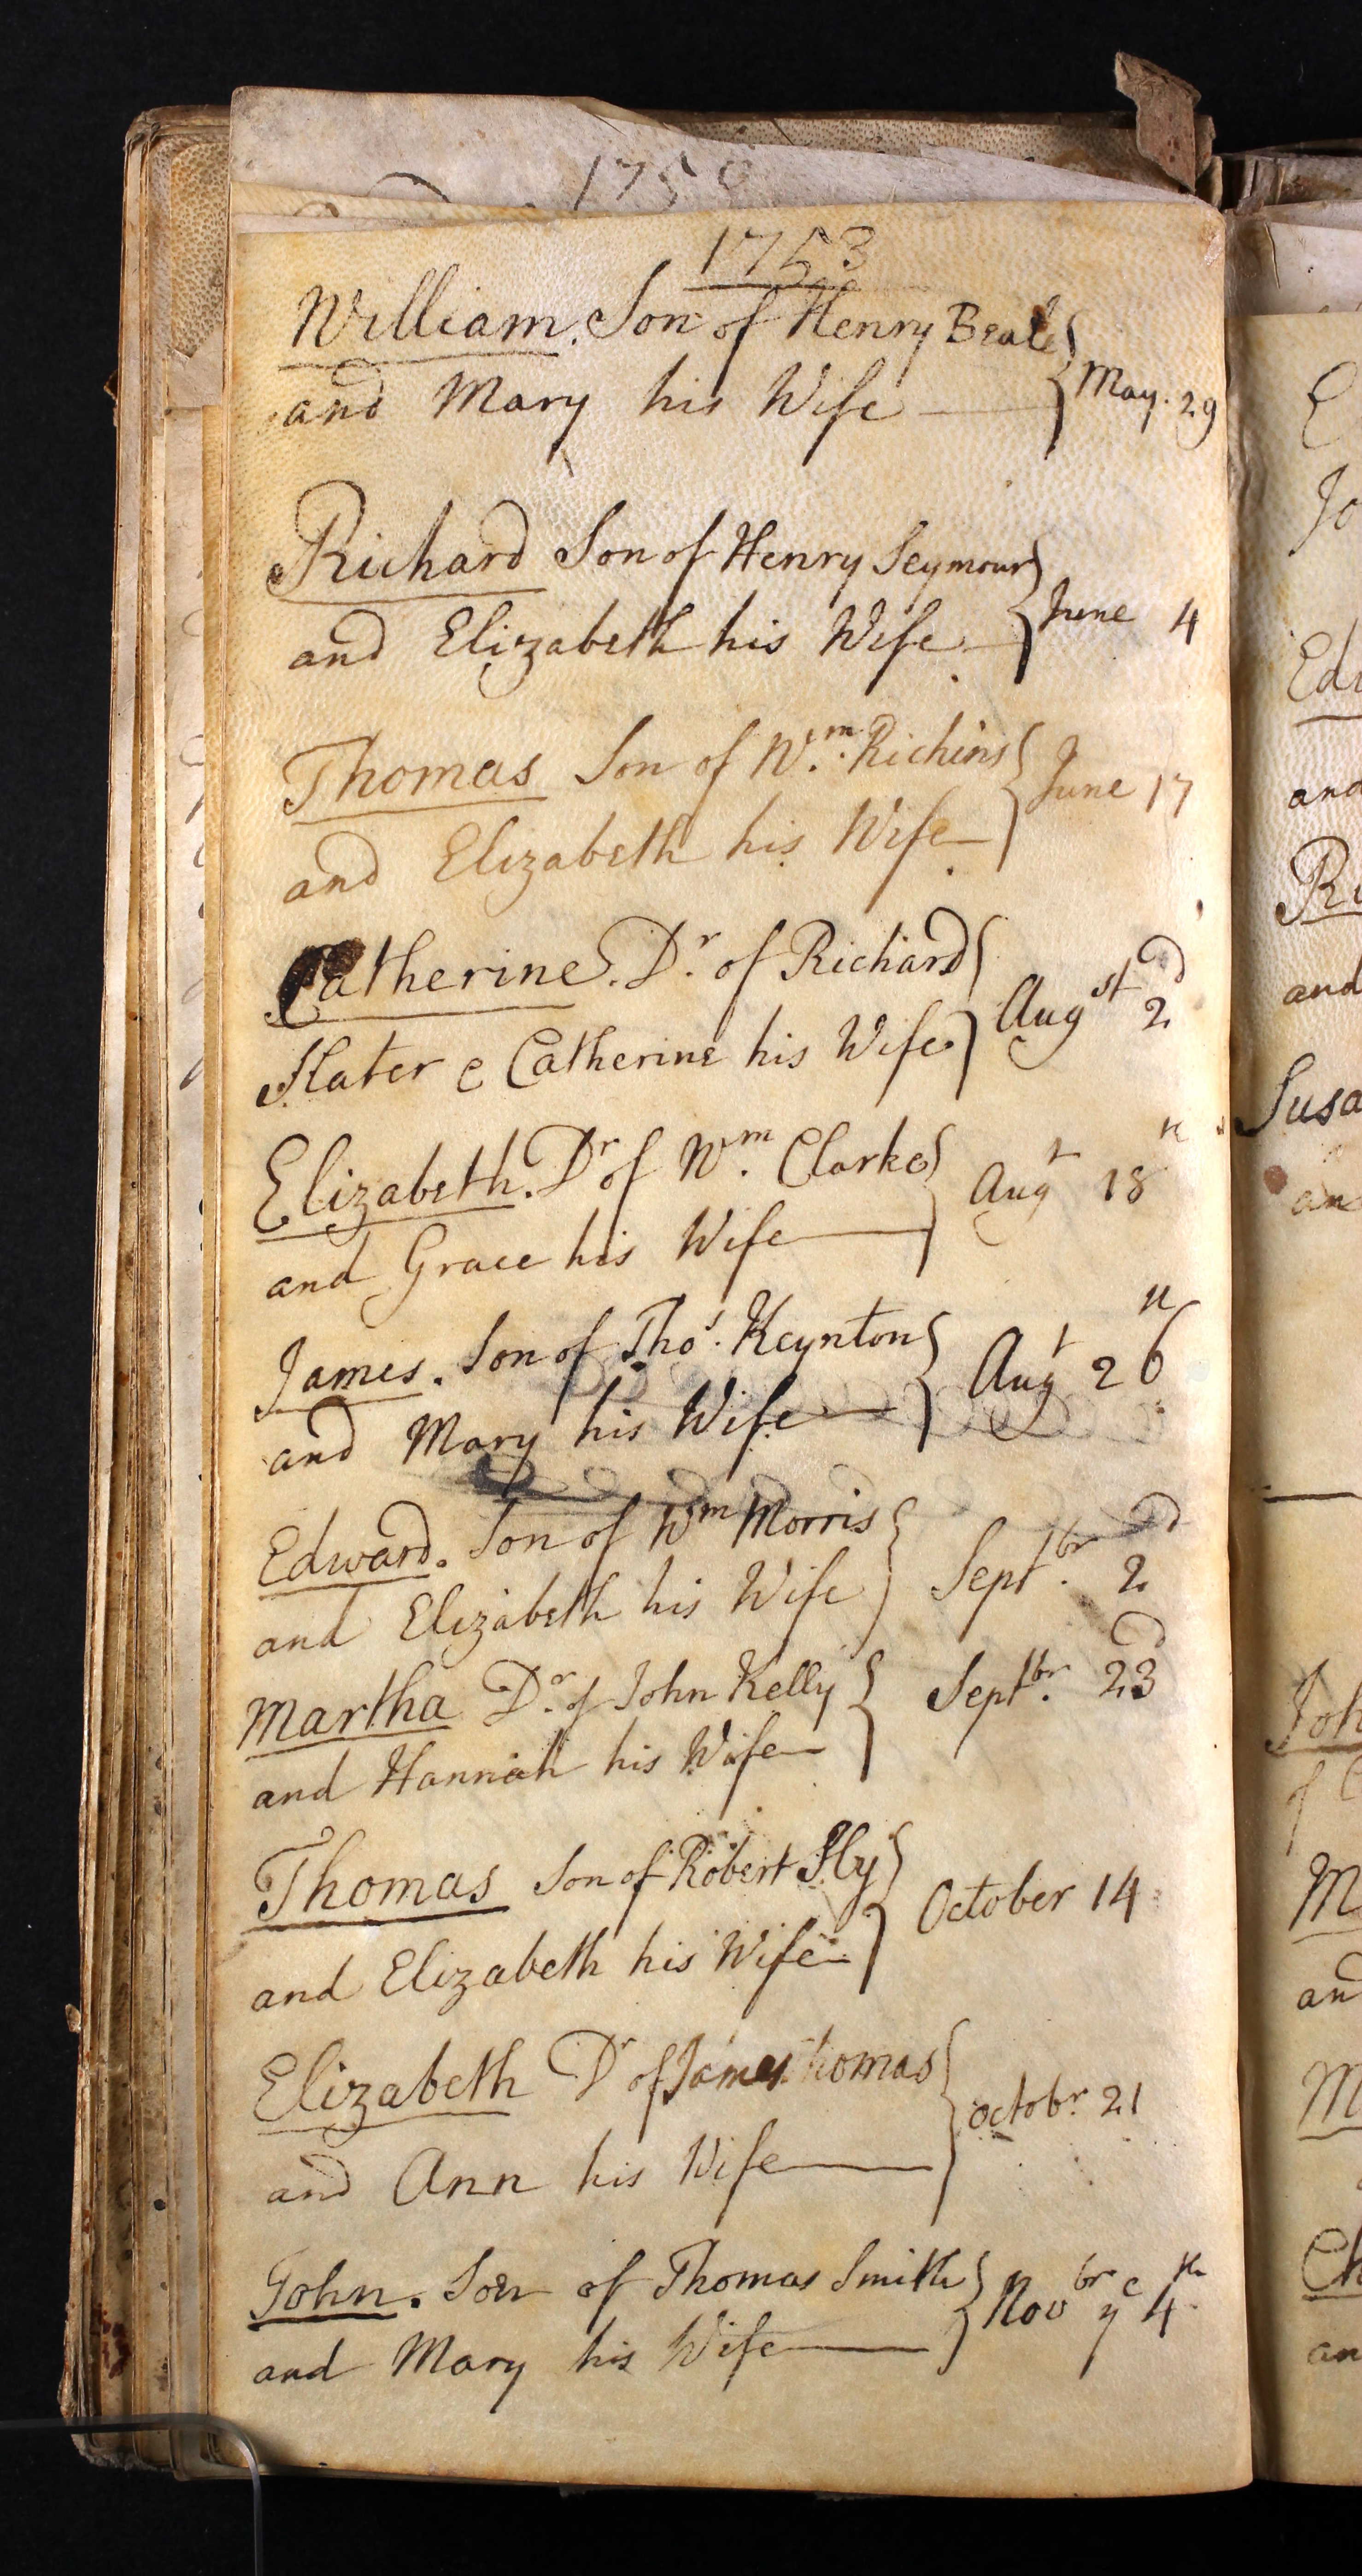 175
1753
William. Son of Henry Beale
and Mary his Wife May. 29
Richard Son of Henry Seymour
and Elizabeth his Wife June 4
Thomas Son of Wm. Richins
and Elizabeth his Wife June 17
Catherine. Dr. of Richard
Slater & Catherine his Wife Augst 2d
Elizabeth. Dr of Wm. Clarke
and Grace his Wife Augt 18th
James. Son of Thos. Keynton
and Mary his Wife Augt 26th
Edward. Son of Wm Morris
and Elizabeth his Wife Septbr. 2d
Martha Dr. of John Kelly
and Hannah his Wife Septbr. 23d
Thomas Son of Robert Sly
and Elizabeth his Wife October 14
Elizabeth Dr of James Thomas
and Ann his Wife Octobr. 21
John. Son of Thomas Smith
and Mary his Wife Novbr ye 4th
Jo
Edw
and
Ri
and
Susa
an
Joh
of
M
an
M
Ch
an